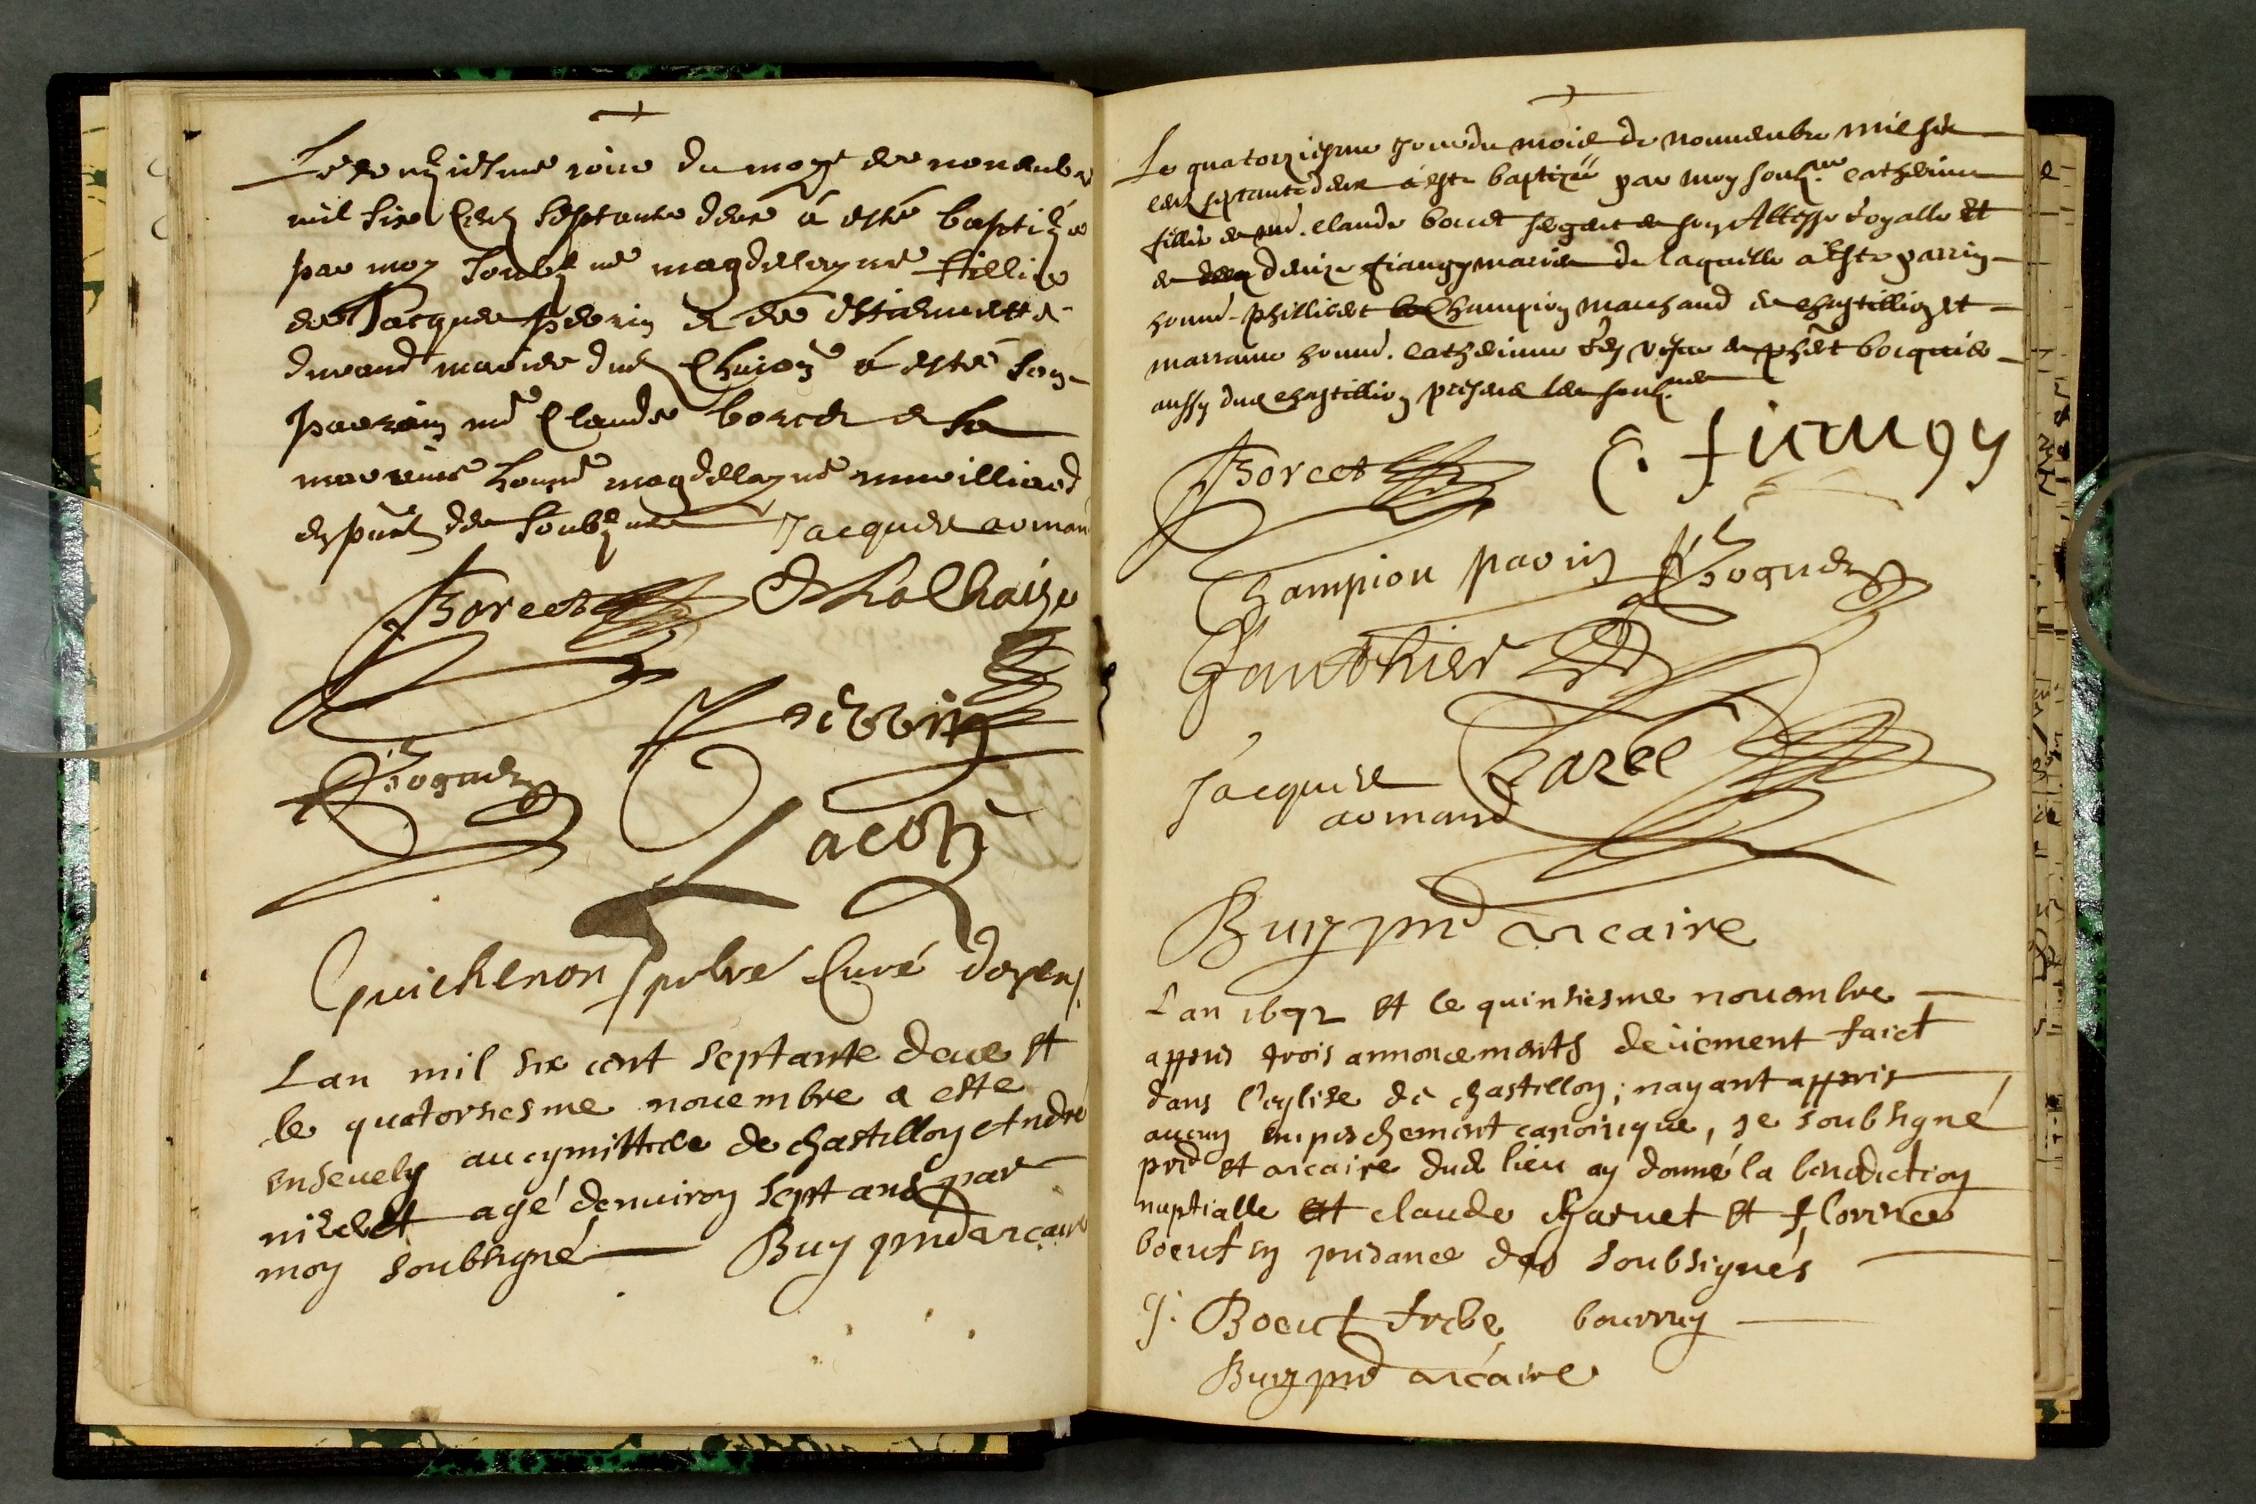 jour du moys de novembre
mil six cens septante deux à esté baptizée
par moy soubzne magdelayne fillie
de Jacque perrin et de estiennette
durand mariés dud à esté son
parrain md Claude borcet et sa
marrine honne magdelayne
en pnt des soubznes Jacques armand
Borcet
Perrin
Bognez
Guichenon pbre Curé doyen
Lan mil six cent septante deux et
le quatorsiesme nouembre a esté
enseuely au cymittere de chastillon Andre
nizelet agé denuiron sept ans par
moy soubsigné Buy pnd vicaire
Le quatorziesme jour du mois de nouuenbre mil six
cens septante deux a esté baptizée par moy soubne catherine
fillie de md. claude borcet de son Altesse royalle et
de denize fiangy mariés de laquelle a esté parrin
honne phillibert Champion marchand de chastillion et
marraine honne. catherine
aussy dud chastillion presens les soubnes
Borcet C. fiangy
Champion parrin Bognez
Gauthier
Jacques
armand
Buy pnd vicaire
Lan 1672 et le quinsiesme nouembre
appres trois annoncements deüement faict
dans l'eglise de chastillon; nayant appris
aucun empeschement canonique, je soubsigné
prd et vicaire dud lieu ay donné la benediction
nuptialle et claude charuet et florence
boeuf en presance des soubsignés
J. Boeuf bourruy
Buy pnd vicaire